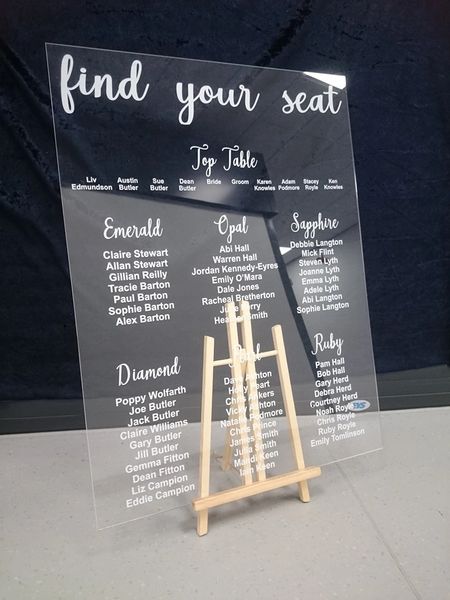 find your seat
Top Table
Liv Edmundson Austin Butler Sue Butler Dean Butler Bride Groom Karen Knowles Adam Podmore Stacey Royle Ken Knowles
Emerald
Claire Stewart
Allan Stewart
Gillian Reilly
Tracie Barton
Paul Barton
Sophie Barton
Alex Barton
Opal
Abi Hall
Warren Hall
Jordan Kennedy-Eyres
Emily O'Mara
Dale Jones
Racheal Bretherton
Smith
Sapphire
Debbie Langton
Mick Flint
Steven Lyth
Joanne Lyth
Emma Lyth
Adele Lyth
Abi Langton
Sophie Langton
Diamond
Poppy Wolfarth
Joe Butler
Jack Butler
Claire Williams
Gary Butler
Jill Butler
Gemma Fitton
Dean Fitton
Liz Campion
Eddie Campion
Dave Ashton
Holly Peart
Chris Ankers
Vicky Ashton
Natalie Podmore
Chris Prince
James Smith
Julia Smith
Mandi Keen
Iain Keen
Ruby
Pam Hall
Bob Hall
Gary Herd
Debra Herd
Courtney Herd
Noah Royle
Chris Royle
Ruby Royle
Emily Tomlinson